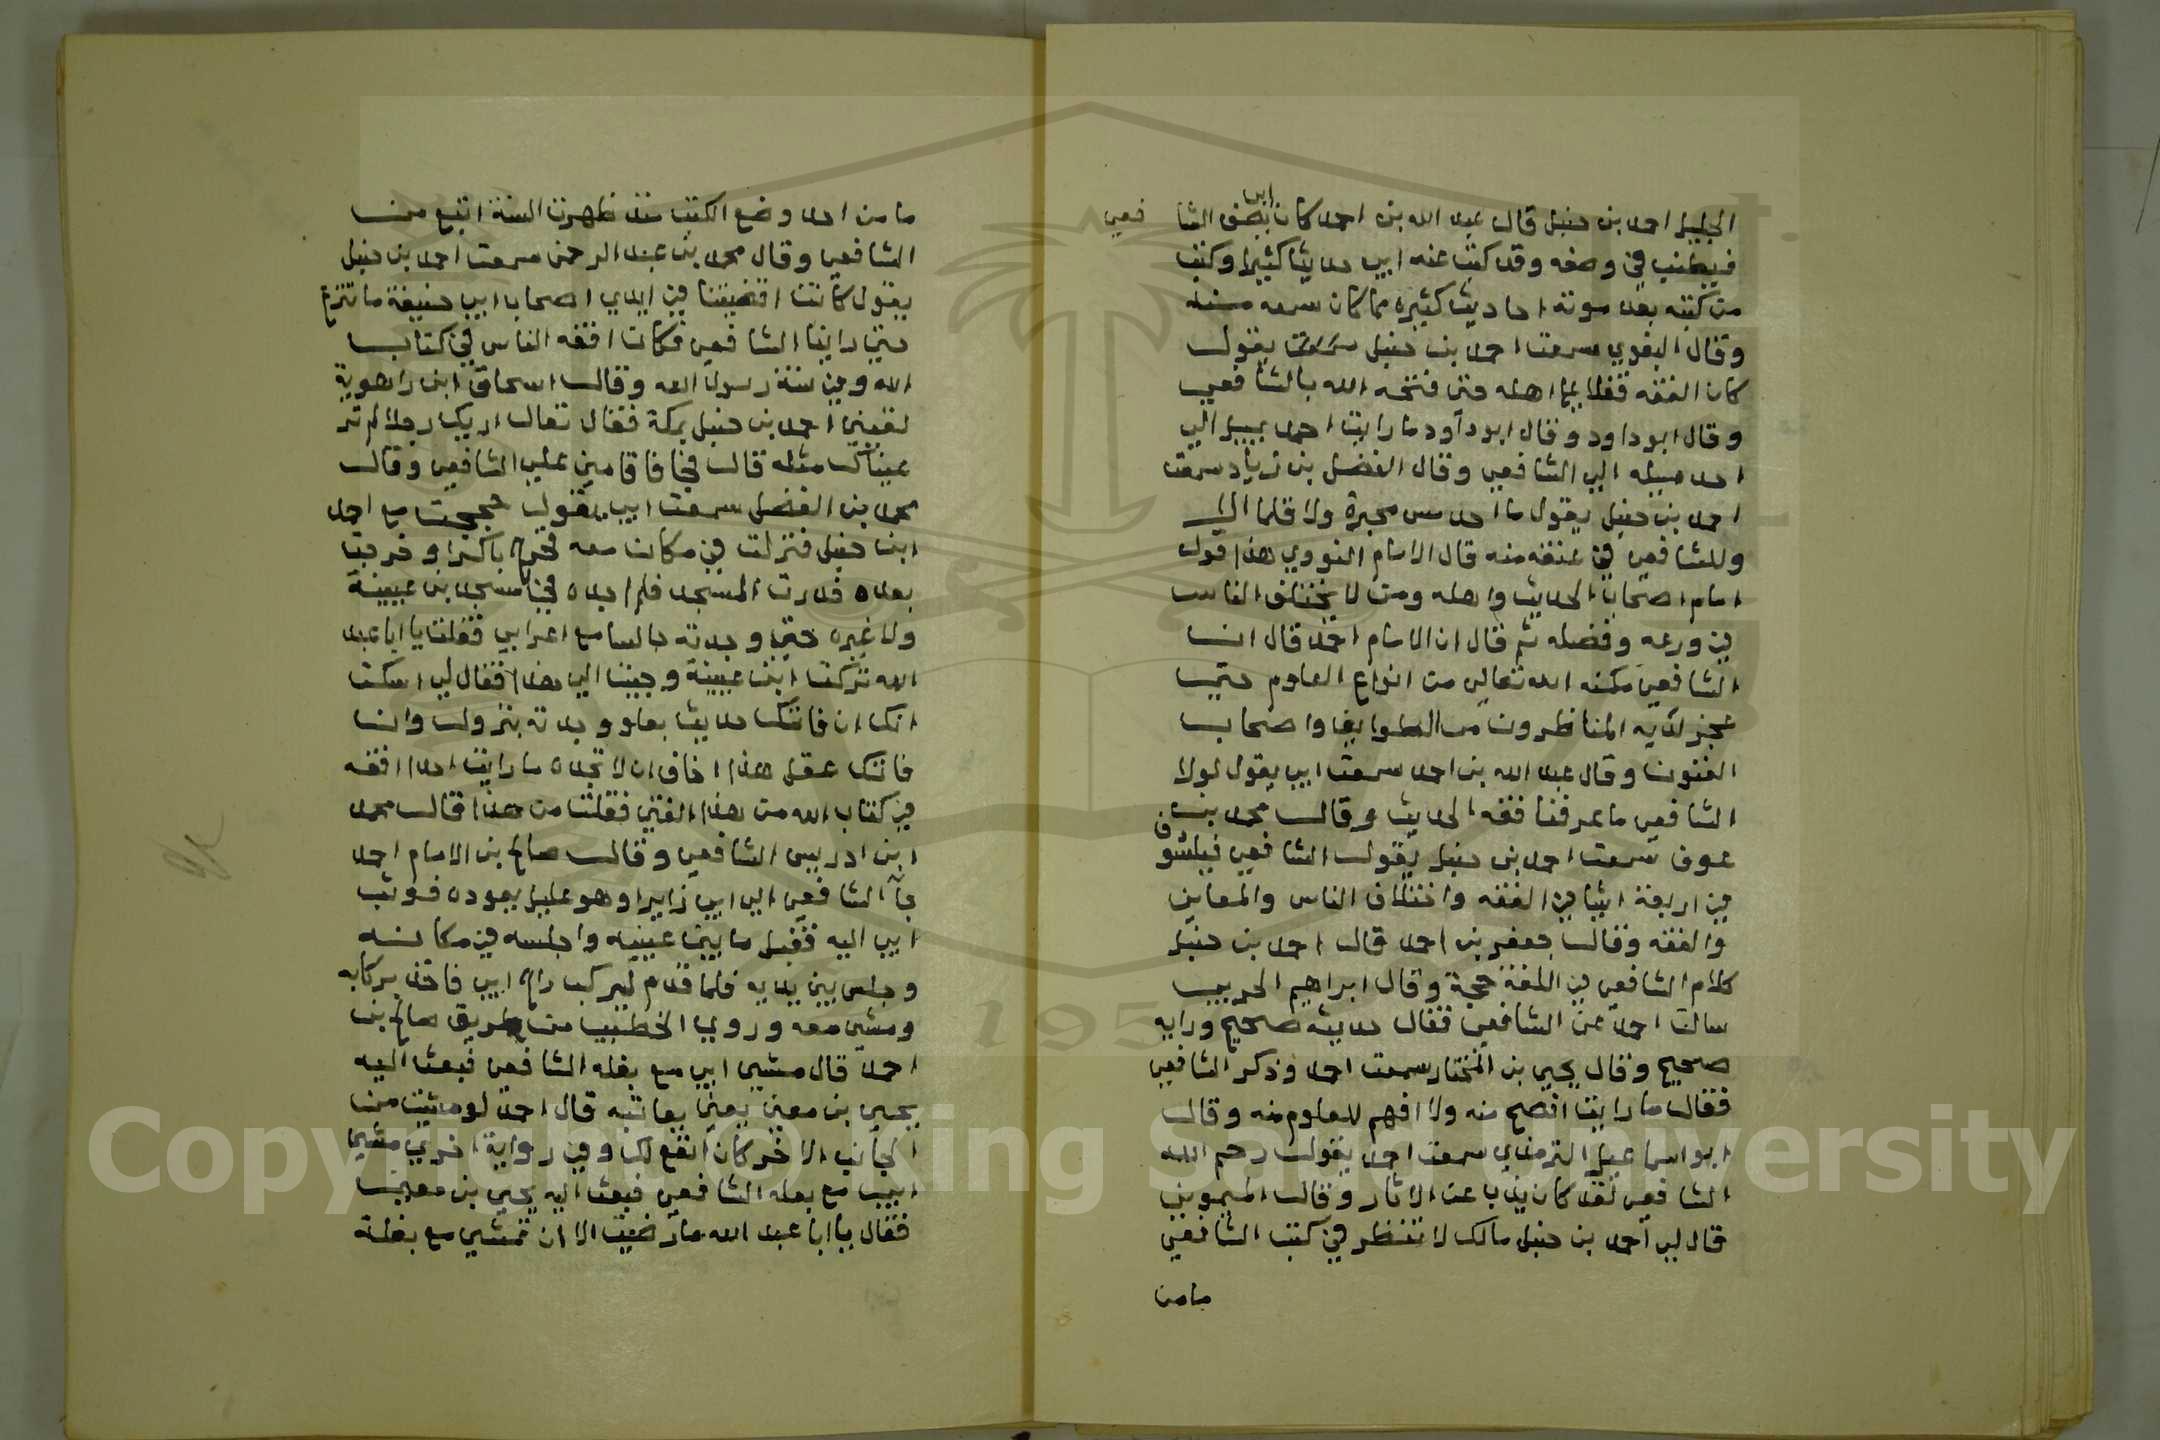 الجليل احمد بن حنبل قال عبد الله بن احمد كان ابي يصف الشافعي
فيطنب في وصفه وقد كتب عنه ابي حديثا كثيرا وكتب
من كتبه بعد موته احاديث كثيره مما كان سمعه منه
وقال البغوي سمعت احمد بن حنبل يقول
كان الفقه قفلا علي اهله حتى فتحه الله بالشافعي
وقال ابو داود وقال ابو داود ما رايت احمد يميل الي
احد ميله الي الشافعي وقال الفضل بن زياد سمعت
احمد بن حنبل يقول ما احد مس محبرة ولا قلما الا
وللشافعي في عنقه منه قال الامام النووي هذا قول
امام اصحاب الحديث واهله ومن لا يختلف الناس
في ورعه وفضله ثم قال ان الامام احمد قال ان
الشافعي مكنه الله تعالي من انواع العلوم حتي
عجز لديه المناظرون من الطوايف واصحاب
الفنون وقال عبد الله بن احمد سمعت ابي يقول لولا
الشافعي ما عرفنا فقه الحديث وقال محمد بن
عوف سمعت احمد بن حنبل يقول الشافعي فيلسوف
في اربعة اشيا في الفقه واختلاف الناس والمعاني
والفقه وقال جعفر بن احمد قال احمد بن حنبل
كلام الشافعي في اللغة حجة وقال ابراهيم الحربي
سالت احمد عن الشافعي فقال حديثه صحيح ورايه
صحيح وقال يحيي بن المختار سمعت احمد وذكر الشافعي
فقال ما رايت افصح منه ولا افهم للعلوم منه وقال
ابو اسماعيل الترمذي سمعت احمد يقول رحم الله
الشافعي لقد كان يذب عن الاثار وقال الميموني
قال لي احمد بن حنبل مالك لا تنظر في كتب الشافعي
مامن
ما من احد وضع الكتب منذ ظهرت السنة اتبع من
الشافعي وقال محمد بن عبد الرحمن سمعت احمد بن حنبل
يقول كانت اقضيتنا في ايدي اصحاب ابي حنيفة ما تنزع
حتي راينا الشافعي فكان افقه الناس في كتاب
الله وفي سنة رسول الله وقال اسحاق ابن راهوية
لقيني احمد بن حنبل بمكة فقال تعال اريك رجلا لم تر
عيناك مثله قال فاقامني علي الشافعي وقال
محمد بن الفضل سمعت ابي يقول حججت مع احمد
ابن حنبل فنزلت في مكان معه فخرج باكرا وخرجت
بعده فدرت المسجد فلم اجده في مسجد بن عيينة
ولا غيره حتي وجدته جالسا مع اعرابي فقلت يا ابا عبد
الله تركت ابن عيينة وجيت الي هذا فقال لي اسكت
انك ان فاتك حديث بعلو وجدته بنزول وان
فاتك عقل هذا اخاف ان لا تجده ما رايت احدا افقه
في كتاب الله من هذا الفتي فقلت من هذا قال محمد
ابن ادريس الشافعي وقال صالح بن الامام احمد
جآ الشافعي الي ابي زايرا وهو عليل يعوده فوثب
ابي اليه فقبل ما بين عينيه واجلسه في مكانه
وجلس بين يديه فلما قدم ليركب راح ابي فاخذ بركابه
ومشي معه وروي الخطيب من طريق صالح بن
احمد قال مشي ابي مع بغله الشافعي فبعث اليه
يحيي بن معين يعني يعاتبه قال احمد لو مشيت من
الجانب الاخر كان انفع لك وفي رواية اخري مشي
ابي مع بغله الشافعي فبعث اليه يحيي بن معين
فقال يا ابا عبد الله ما رضيت الا ان تمشي مع بغلة
Copyright © King Saud University
195